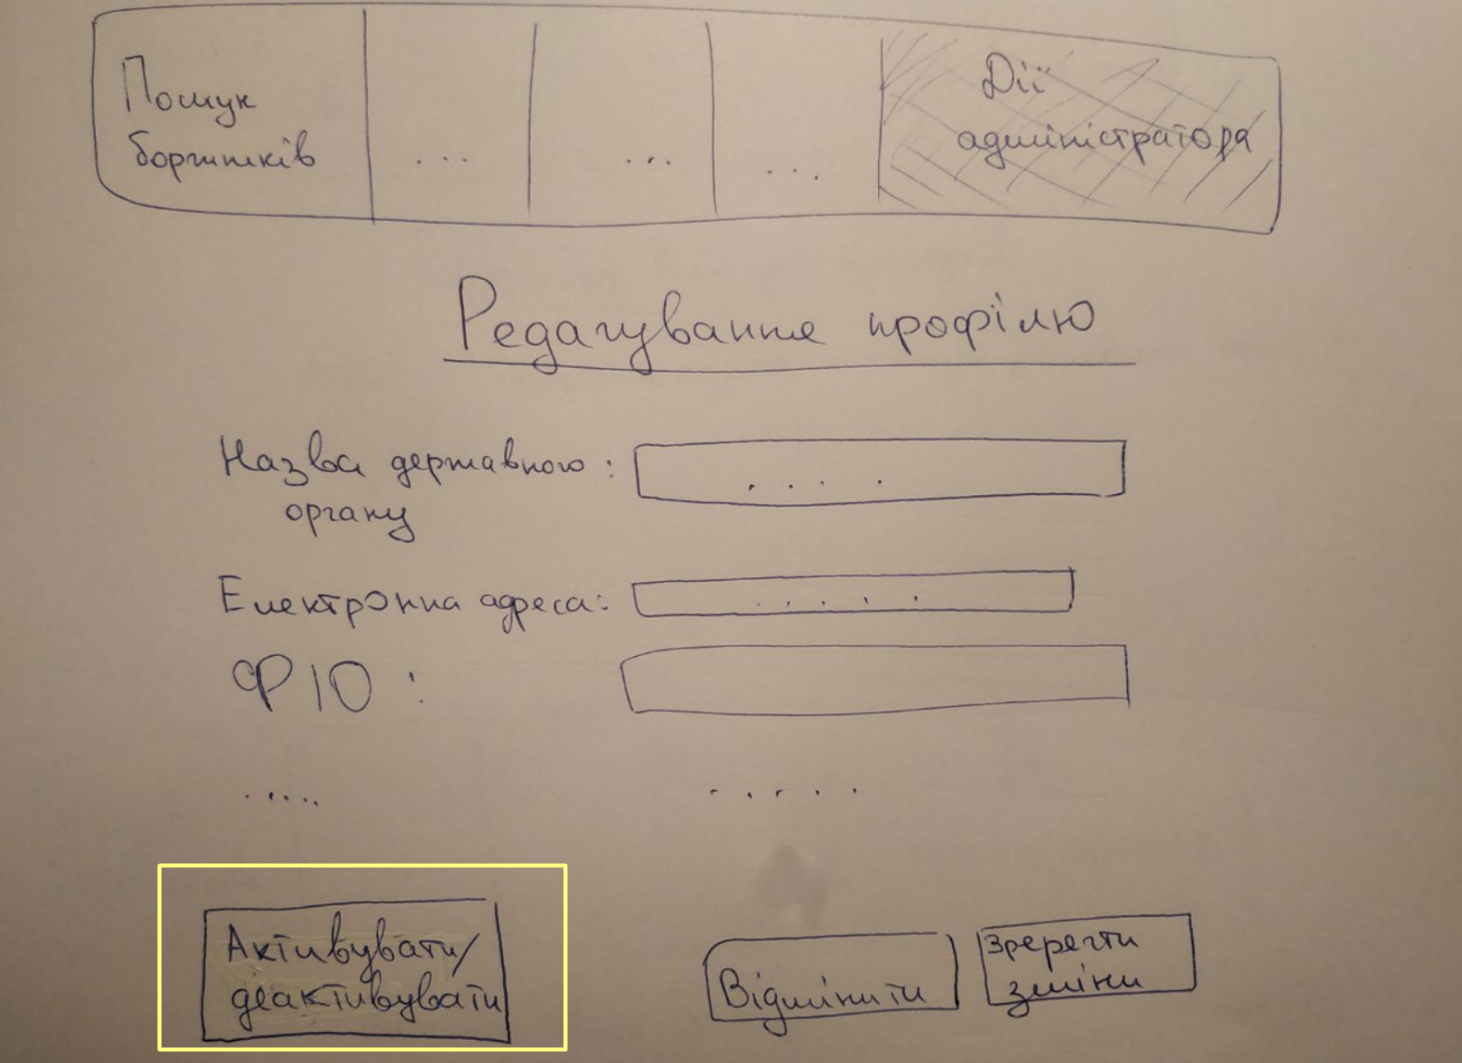 Пошук
боржників
...
...
...
Дії
адміністратора
Редагування профілю
Назва державного :
органу
....
Електронна адреса:
.....
ФІО :
.....
.....
Активувати/
деактивувати
Відмінити
Зберегти
зміни